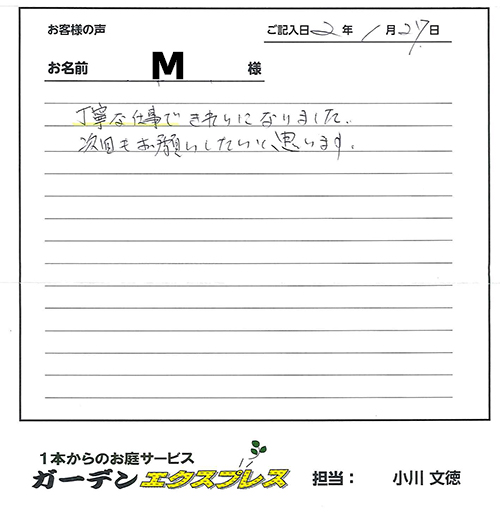 お客様の声
ご記入日 2 年 1 月 27 日
お名前 M 様
丁寧な仕事できれいになりました.
次回もお願いしたいと思います.
1本からのお庭サービス
ガーデンエクスプレス 担当： 小川 文徳